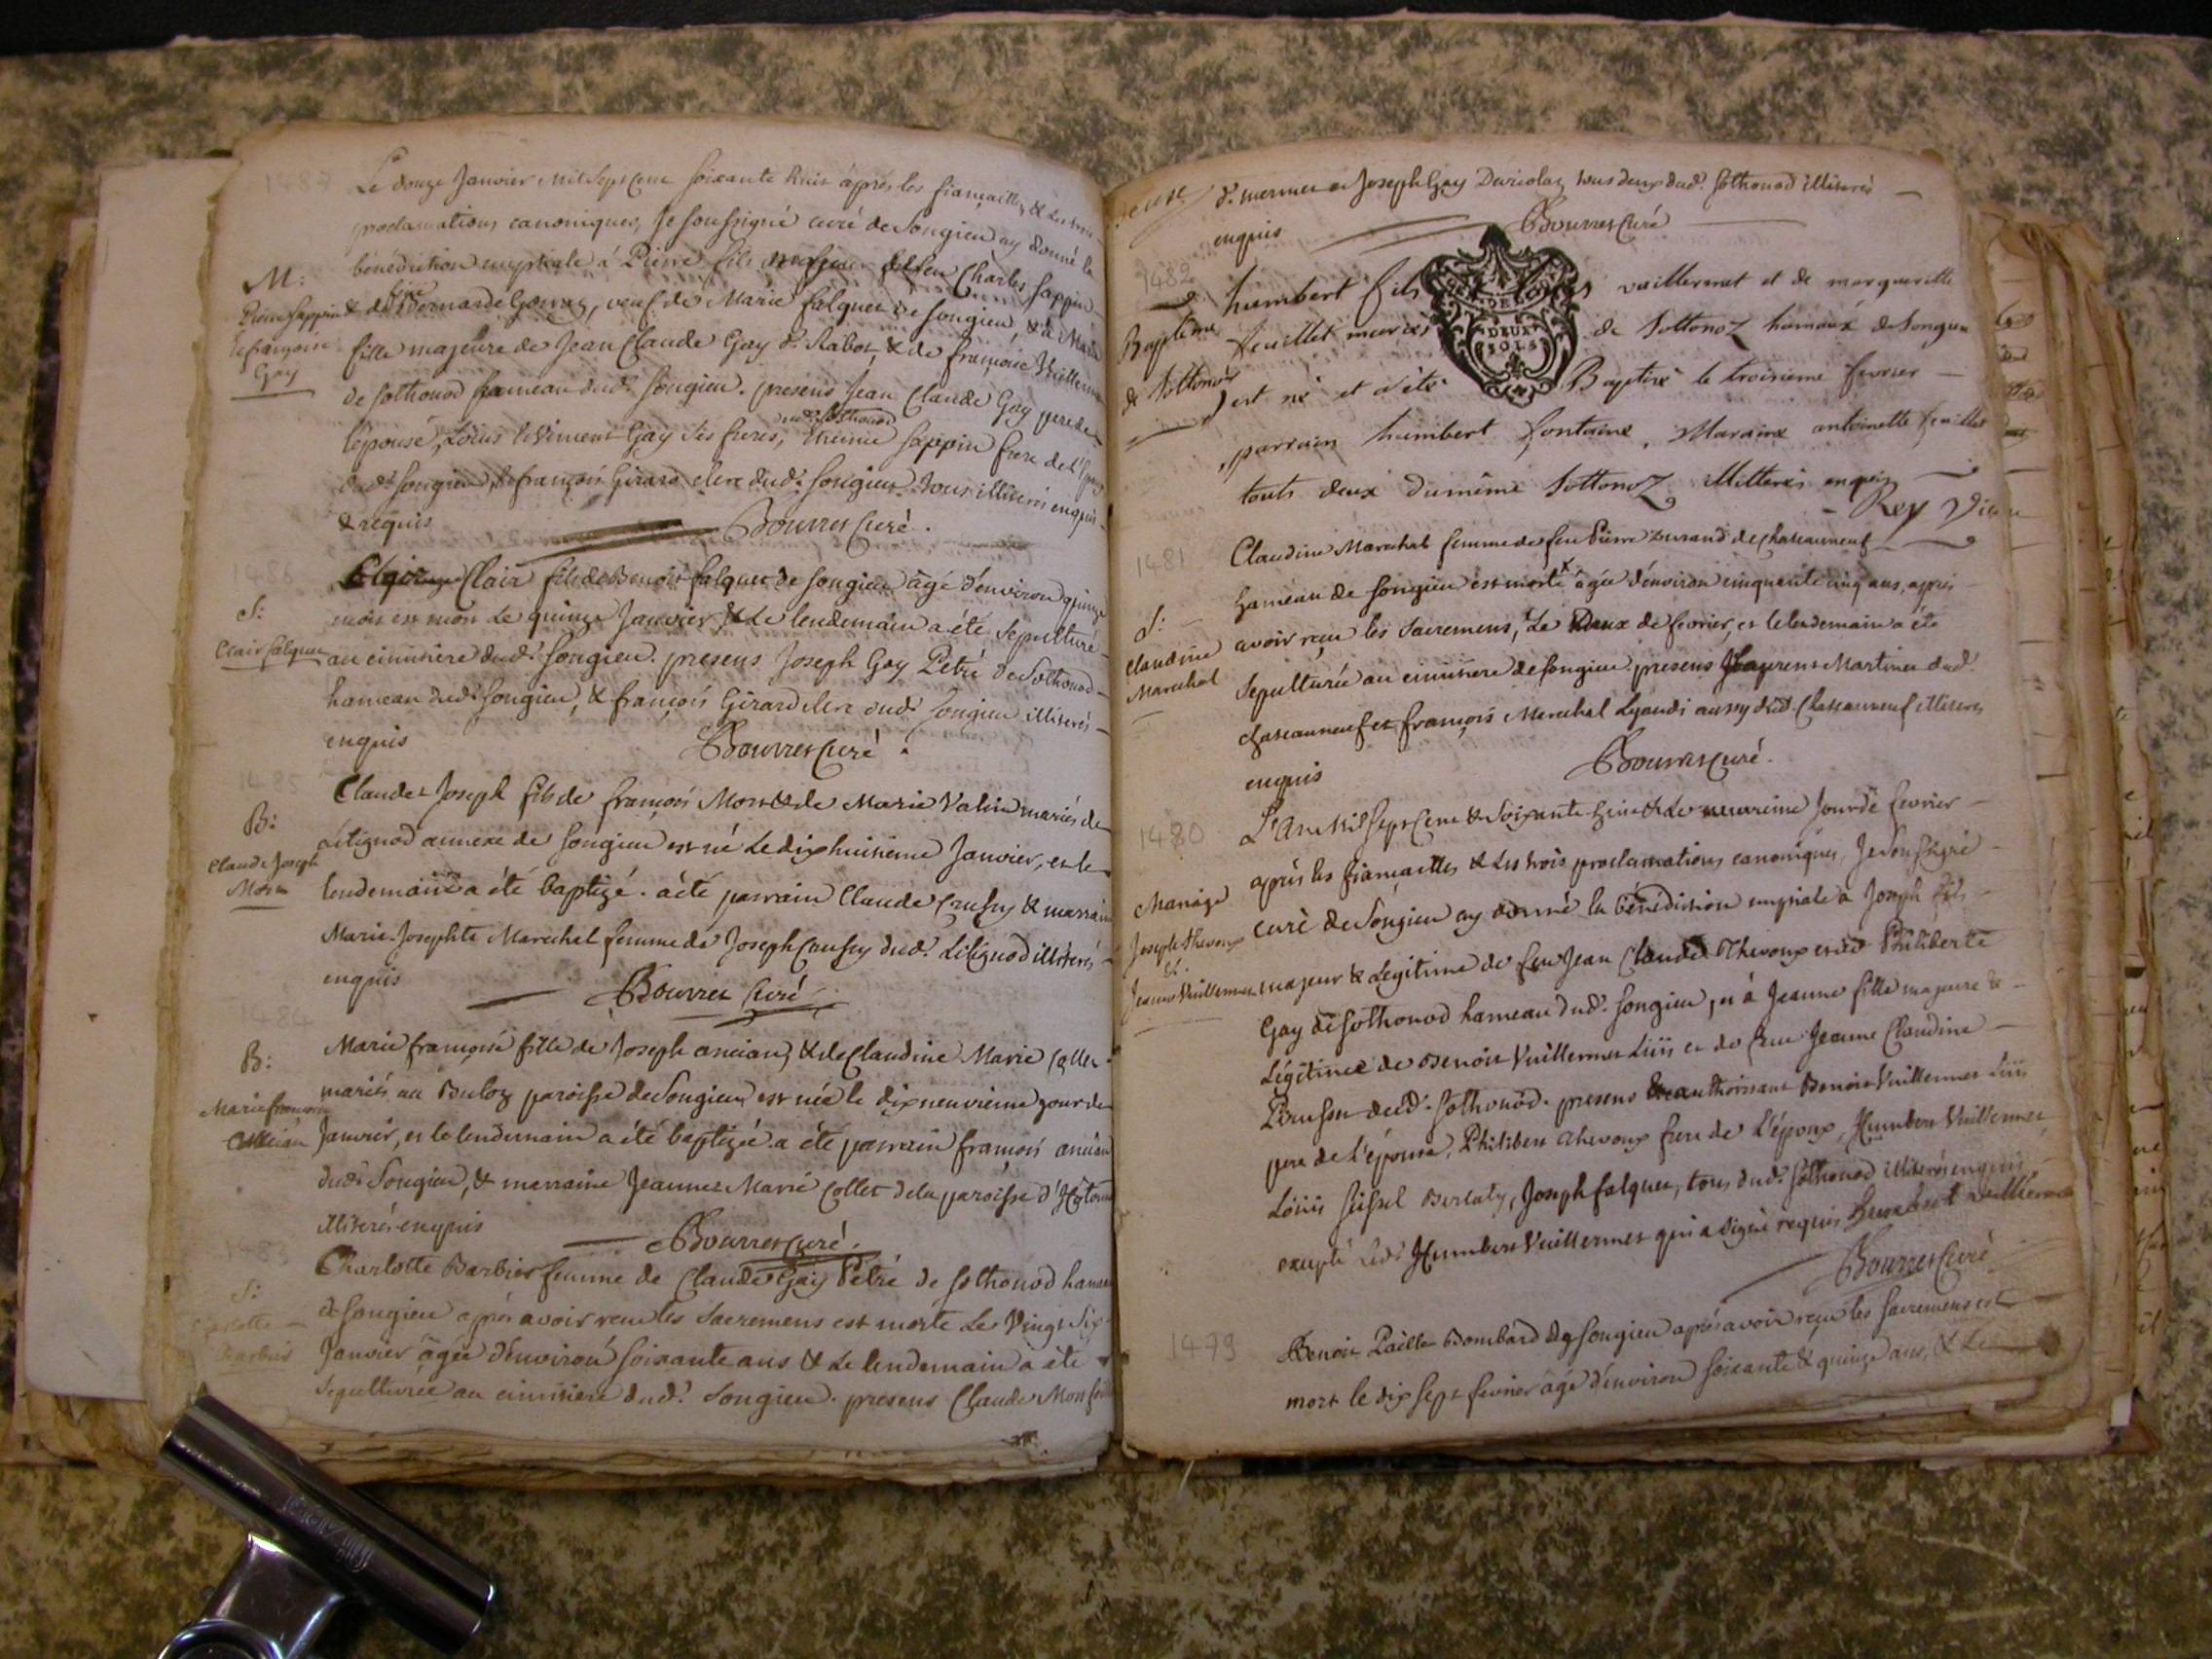 1487
Le douze Janvier mil sept cent soixante huit après les fiancailles & les trois
proclamations canoniques, Je soussigné curé de Songieu ay donné la
M: bénédiction nuptiale à Pierre fils majeur de feu Charles Sappin
Pierre Sappin & de Bernarde, veuf de Marie falquet de Songieu, & à Marie
françoise fille majeure de Jean Claude Gay dt Rabot, & de françoise Vuillermet
Gay de Sothonod hameau dudt Songieu. presens Jean Claude Gay pere de
l'épouse, Louis Gay ses freres, dudt Sothonod Sappin frere de l'époux
dudt Songieu, & françois Girard clerc dudt Songieu tous illiterés enquis
& requis Bourret Curé.
1486
Clair fils de Benoit falquet de Songieu âgé d'environ quinze
S: mois est mort le quinze Janvier, & le lendemain a été sepulturé
Clair falquet au cimitiere dudt Songieu. presens Joseph Gay Petré de Sothonod
hameau dudt Songieu, & françois Girard clerc dudt Songieu illiterés
enquis Bourret Curé.
1485
Claude Joseph fils de françois Mort & de Marie Valin mariés de
B: Litignod annexe de Songieu est né le dixhuitieme Janvier, et le
Claude Joseph
Mort lendemain a été baptizé. a été parrain Claude & marraine
Marie Josephte Marechal femme de Joseph dudt Litignod illiterés
enquis Bourret Curé
1484
Marie françoise fille de Joseph ancian, & de Claudine Marie Collet
B: mariés au Buloz paroisse de Songieu est née le dixneuvieme jour de
Marie françoise
Ancian Janvier, et le lendemain a été baptizé. a été parrain françois ancian
dudt Songieu, & marraine Jeanne Marie Collet de la paroisse d'
illiterés enquis Bourret Curé.
1483
Charlotte Barbier femme de Claude Gay Petré de Sothonod hameau
S: de Songieu après avoir reçu les Sacremens est morte le Vingt Six
Charlotte
Barbier Janvier âgée d'environ soixante ans & le lendemain a été
sepulturée au cimitiere dudt Songieu. presens Claude Mort
et Joseph Gay tous deux dudt Sothonod illiterés
enquis Bourret Curé
1482
humbert fils vuillermet et de marguerite
Bapteme feuillet mariés de Sottonoz hameaux de Songieu
de Sottonoz est né et a été Baptisé le troisieme fevrier
parrain humbert fontaine, Maraine antoinette feuillet
touts deux du même Sottonoz illiterés enquis
Rey
DEUX
SOLS
1481
Claudine Marechal femme de feu Pierre Durand de chateauneuf
hameau de Songieu est morte âgée d'environ cinquante cinq ans, après
S: avoir reçu les Sacremens, le Deux de fevrier, et le lendemain a été
Claudine
Marechal Sepulturée au cimitiere de Songieu presens Laurent Martinet dudt
chateauneuf et françois Marechal Lyaudi aussy dudt Chateauneuf illiterés
enquis Bourret Curé.
1480
L'An Mil Sept Cent & Soixante huit & le neuvieme Jour de fevrier
après les fiancailles & les trois proclamations canoniques, Je soussigné
Mariage curé de Songieu ay donné la bénédiction nuptiale à Joseph fils
Joseph Thevoux
& Jeanne Vuillermet majeur & Légitime de feu Jean Claude Thevoux et de Philiberte
Gay de Sothonod hameau dudt Songieu, et à Jeanne fille majeure &
Légitime de Benoit Vuillermet Liii et de feue Jeanne Claudine
dudt Sothonod. presens & authorisant Benoit Vuillermet Liii
pere de l'épouse, Philibert Thevoux frere de l'époux, Humbert Vuillermet
Louis Seissel, Joseph falquet, tous dudt Sothonod illiterés enquis
excepté ledt Humbert Vuillermet qui a signé requis humbert vuillermet
Bourret Curé
1479
Benoit Paillet Bombard de Songieu après avoir reçu les Sacremens est
mort le dix sept fevrier âgé d'environ soixante & quinze ans, & le